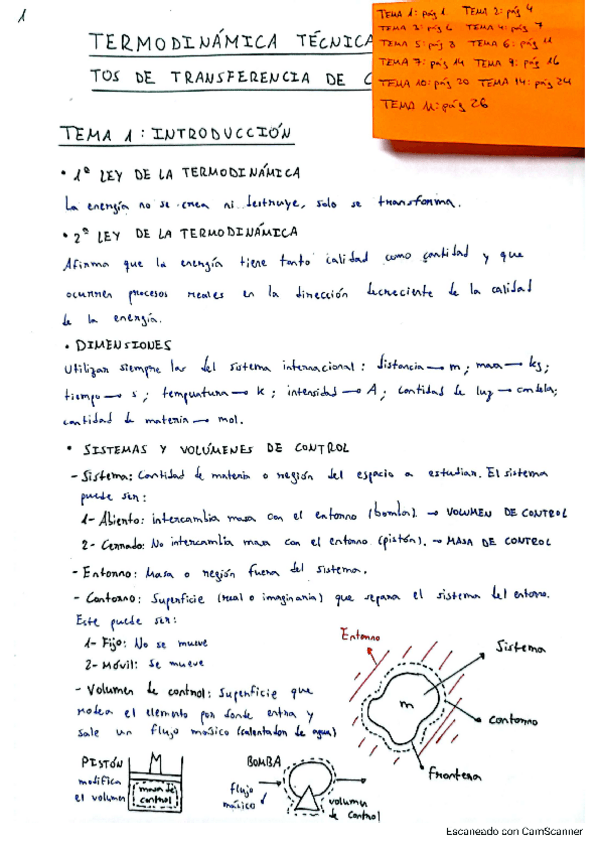 1
TEMA 1: pág 1 TEMA 2: pág 4
TEMA 3: pág 6 TEMA 4: pág 7
TEMA 5: pág 8 TEMA 6: pág 11
TEMA 7: pág 14 TEMA 9: pág 16
TEMA 10: pág 20 TEMA 14: pág 24
TEMA 11: pág 26
TERMODINÁMICA TÉCNICA
TOS DE TRANSFERENCIA DE C
TEMA 1: INTRODUCCIÓN
• 1ª LEY DE LA TERMODINÁMICA
La energía no se crea ni destruye, solo se transforma.
• 2ª LEY DE LA TERMODINÁMICA
Afirma que la energía tiene tanto calidad como cantidad y que
ocurren procesos reales en la dirección decreciente de la calidad
de la energía.
• DIMENSIONES
Utilizar siempre las del sistema internacional: distancia → m; masa → kg;
tiempo → s; temperatura → K; intensidad → A; cantidad de luz → candela;
cantidad de materia → mol.
• SISTEMAS Y VOLÚMENES DE CONTROL
- Sistema: Cantidad de materia o región del espacio a estudiar. El sistema
puede ser:
1- Abierto: intercambia masa con el entorno (bomba). → VOLUMEN DE CONTROL
2- Cerrado: No intercambia masa con el entorno (pistón). → MASA DE CONTROL
- Entorno: Masa o región fuera del sistema.
- Contorno: Superficie (real o imaginaria) que separa el sistema del entorno.
Este puede ser:
1- Fijo: No se mueve
2- Móvil: Se mueve
- Volumen de control: Superficie que
rodea el elemento por donde entra y
sale un flujo másico (calentador de agua)
Entorno
Sistema
m
contorno
frontera
PISTÓN
modifica
el volumen
M
masa de
control
BOMBA
flujo
másico
volumen
de control
Escaneado con CamScanner